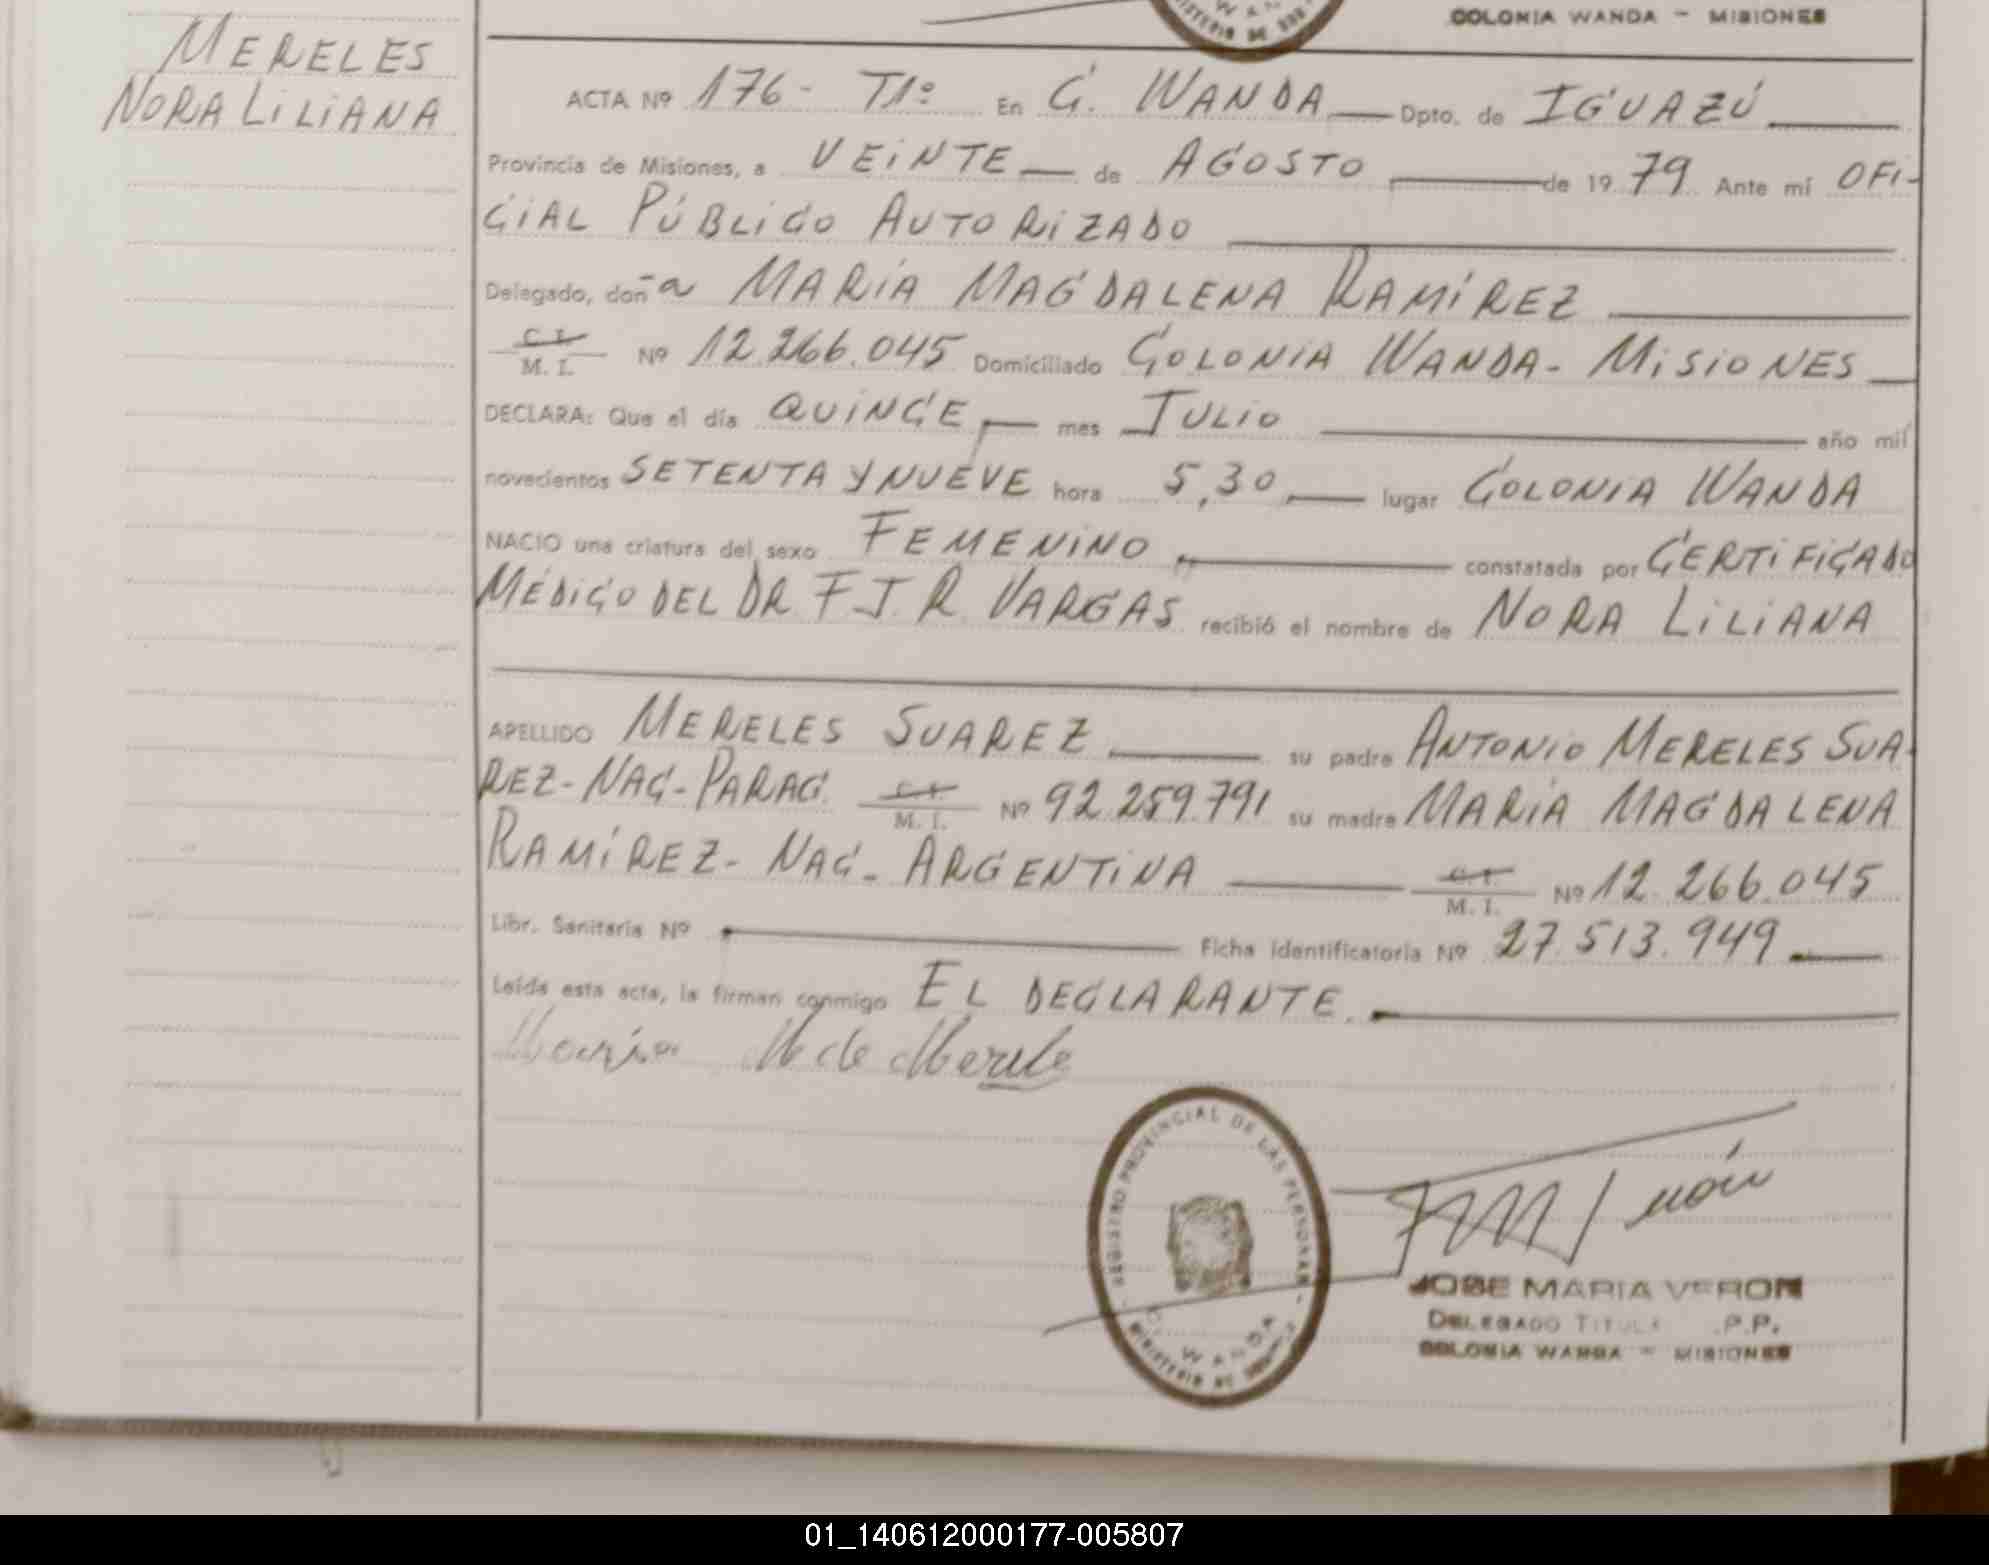 COLONIA WANDA - MISIONES
MERELES
NORA LILIANA
ACTA Nº 176 - T1º En C. WANDA Dpto. de IGUAZÚ
Provincia de Misiones, a VEINTE de AGOSTO de 1979 Ante mí OFI-
CIAL PÚBLICO AUTORIZADO
Delegado, doña MARÍA MAGDALENA RAMÍREZ
C. I. / M. I. Nº 12.266.045 Domiciliado COLONIA WANDA - MISIONES
DECLARA: Que el día QUINCE mes JULIO año mil
novecientos SETENTA Y NUEVE hora 5,30 lugar COLONIA WANDA
NACIO una criatura del sexo FEMENINO constatada por CERTIFICADO
MÉDICO DEL DR F.J.R. VARGAS recibió el nombre de NORA LILIANA
APELLIDO MERELES SUAREZ su padre ANTONIO MERELES SUA-
REZ - NAC - PARAG. C. I. / M. I. Nº 92.259.791 su madre MARÍA MAGDALENA
RAMÍREZ - NAC - ARGENTINA C. I. / M. I. Nº 12.266.045
Libr. Sanitaria Nº Ficha identificatoria Nº 27.513.949
Leída esta acta, la firman conmigo EL DECLARANTE.
María M de Merele
REGISTRO PROVINCIAL DE LAS PERSONAS
C. WANDA
MINISTERIO DE
JOSE MARIA VERON
DELEGADO TITULA P.P.
COLONIA WANDA - MISIONES
01_140612000177-005807